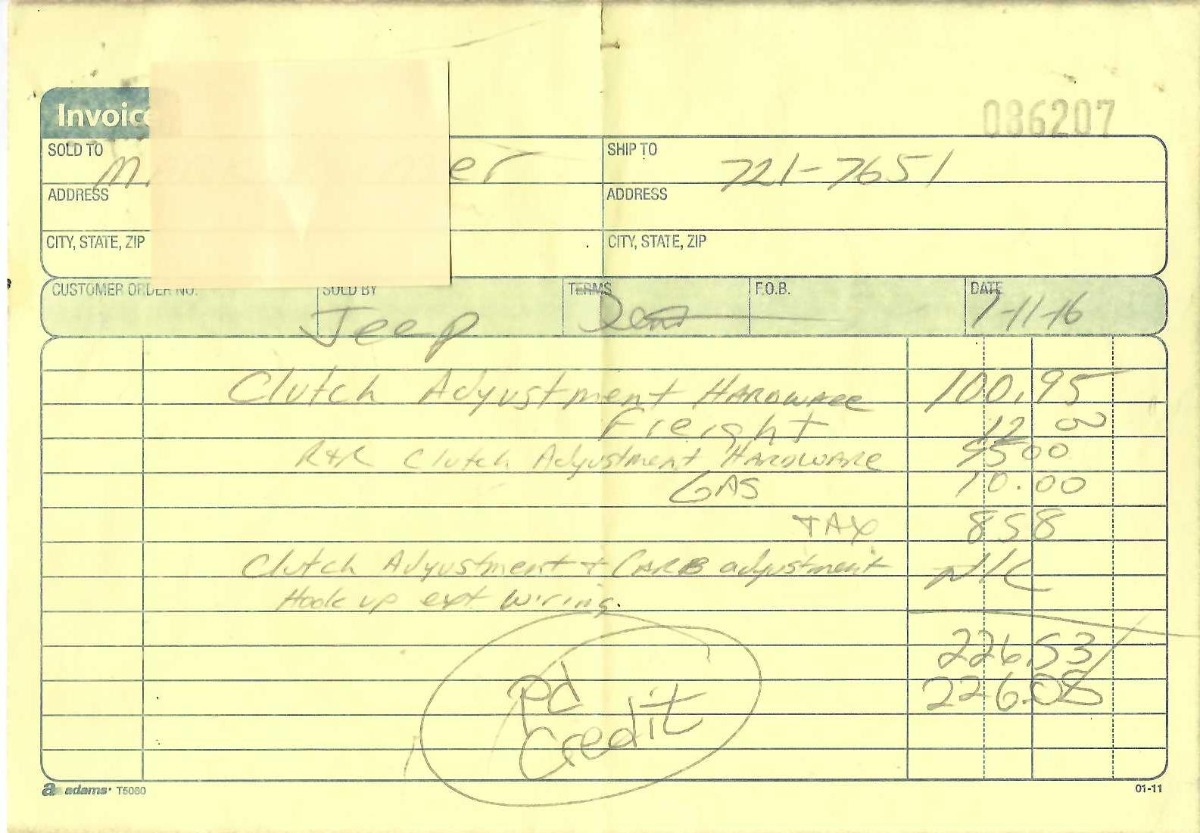 Invoice
086207
SOLD TO M er SHIP TO 721-7651
ADDRESS ADDRESS
CITY, STATE, ZIP CITY, STATE, ZIP
CUSTOMER ORDER NO. SOLD BY TERMS F.O.B. DATE
Jeep 1-11-16
Clutch Adjustment HARDWARE 100.95
Freight 12 00
R+R Clutch Adjustment HARDWARE 95 00
GAS 10.00
TAX 8 58
Clutch Adjustment + CARB adjustment N/C
Hook up ext wiring.
226.53
226.08
pd
Credit
a adams T5080 01-11